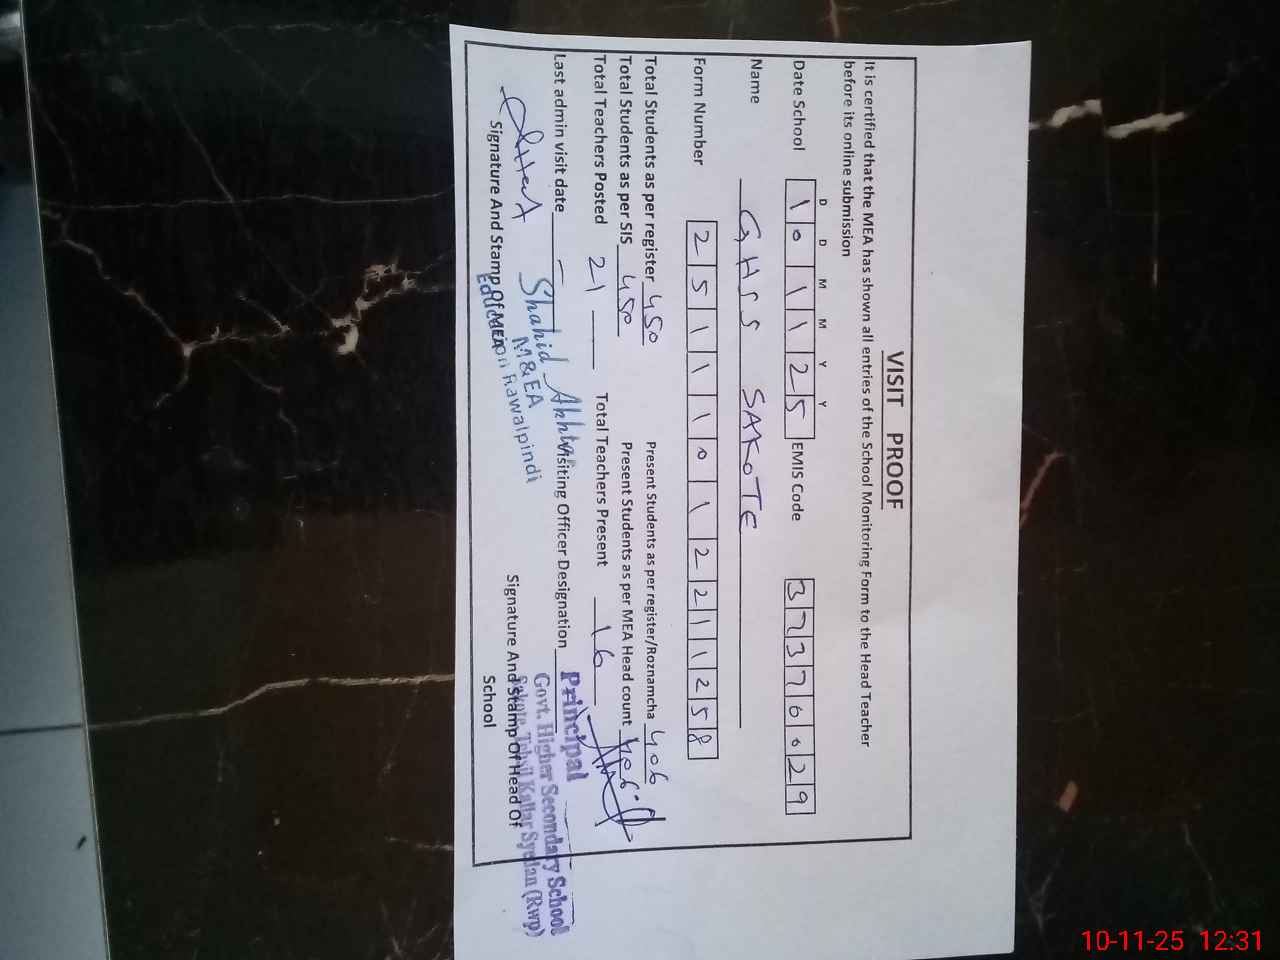 VISIT PROOF
It is certified that the MEA has shown all entries of the School Monitoring Form to the Head Teacher
before its online submission
D D M M Y Y
Date School 1 0 1 1 2 5 EMIS Code 3 7 3 7 6 0 2 9
Name GHSS SAKOTE
Form Number 2 5 1 1 1 0 1 2 2 1 1 2 5 8
Total Students as per register 450 Present Students as per register/Roznamcha 406
Total Students as per SIS 450 Present Students as per MEA Head count 406
Total Teachers Posted 21 Total Teachers Present 16
Last admin visit date Visiting Officer Designation
Shahid Akhtar
M&EA
Education Rawalpindi
Signature And Stamp Of MEA
Principal
Govt. Higher Secondary School
Sakote, Tehsil Kallar Syedan (Rwp)
Signature And Stamp Of Head Of
School
10-11-25 12:31